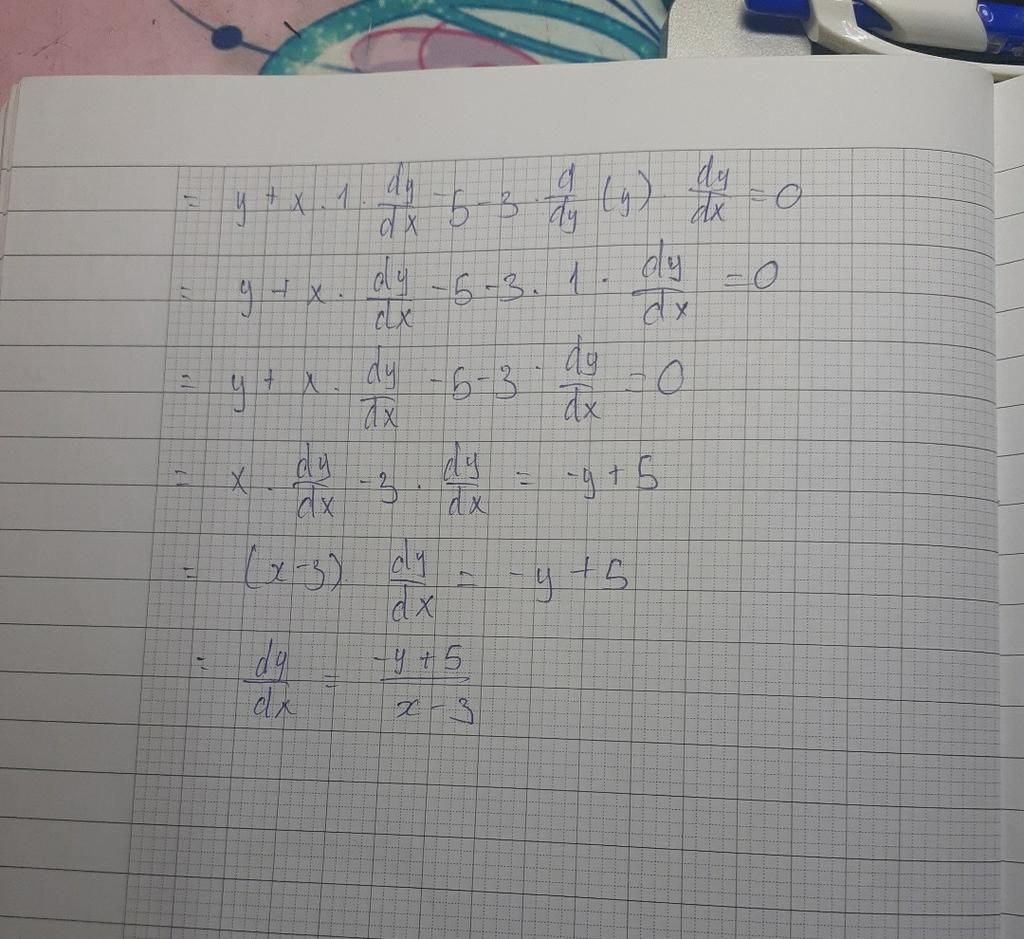 = y + x · 1 · dy/dx - 5 - 3 · d/dy (y) · dy/dx = 0
= y + x · dy/dx - 5 - 3 · 1 · dy/dx = 0
= y + x · dy/dx - 5 - 3 · dy/dx = 0
= x · dy/dx - 3 · dy/dx = -y + 5
= (x - 3) · dy/dx = -y + 5
= dy/dx = -y + 5/x - 3